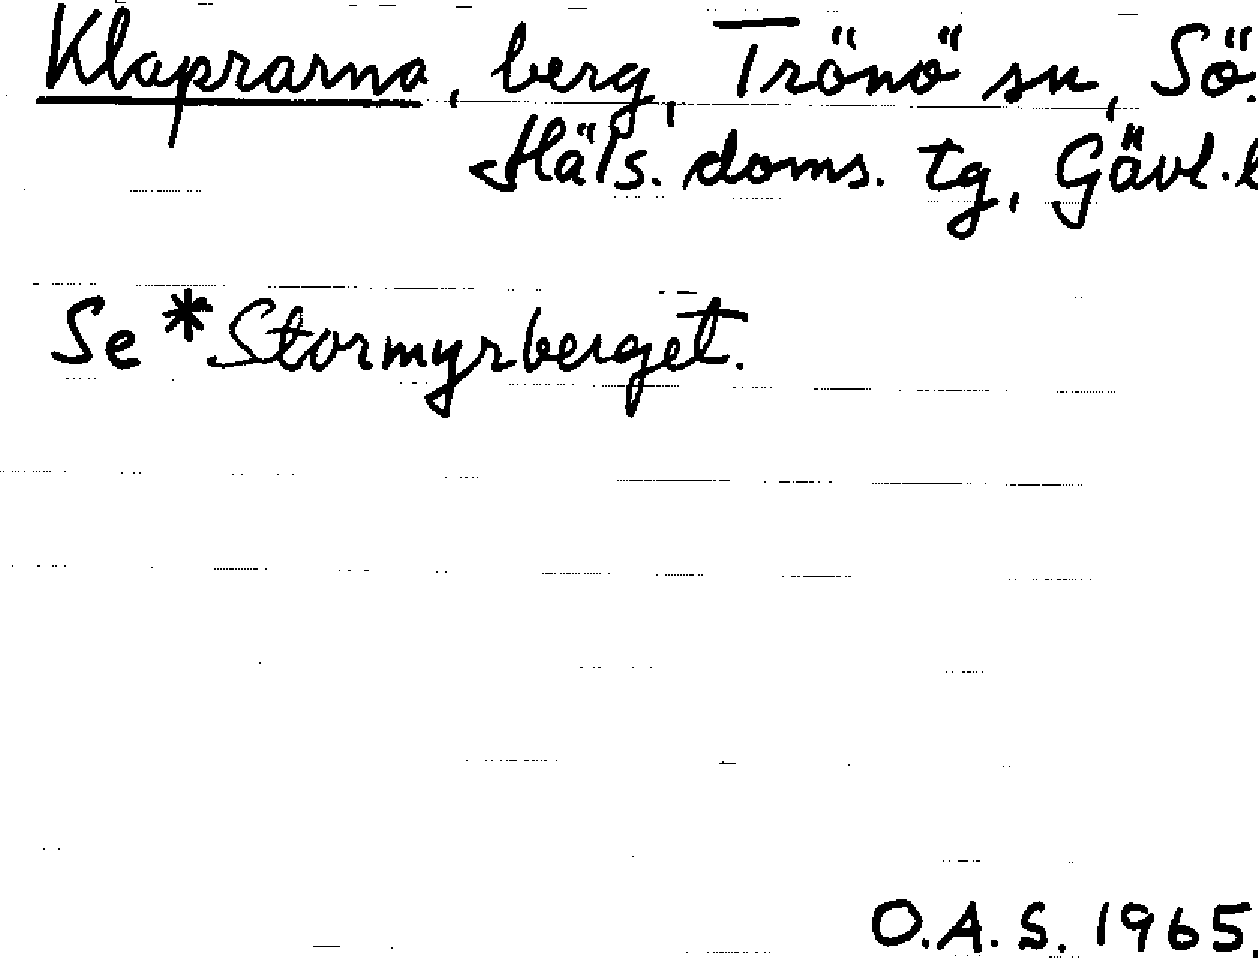 Klaprarna, berg, Trönö sn, Sö.
Häls. doms. tg, Gävl. l
Se *Stormyrberget.
O.A.S. 1965.